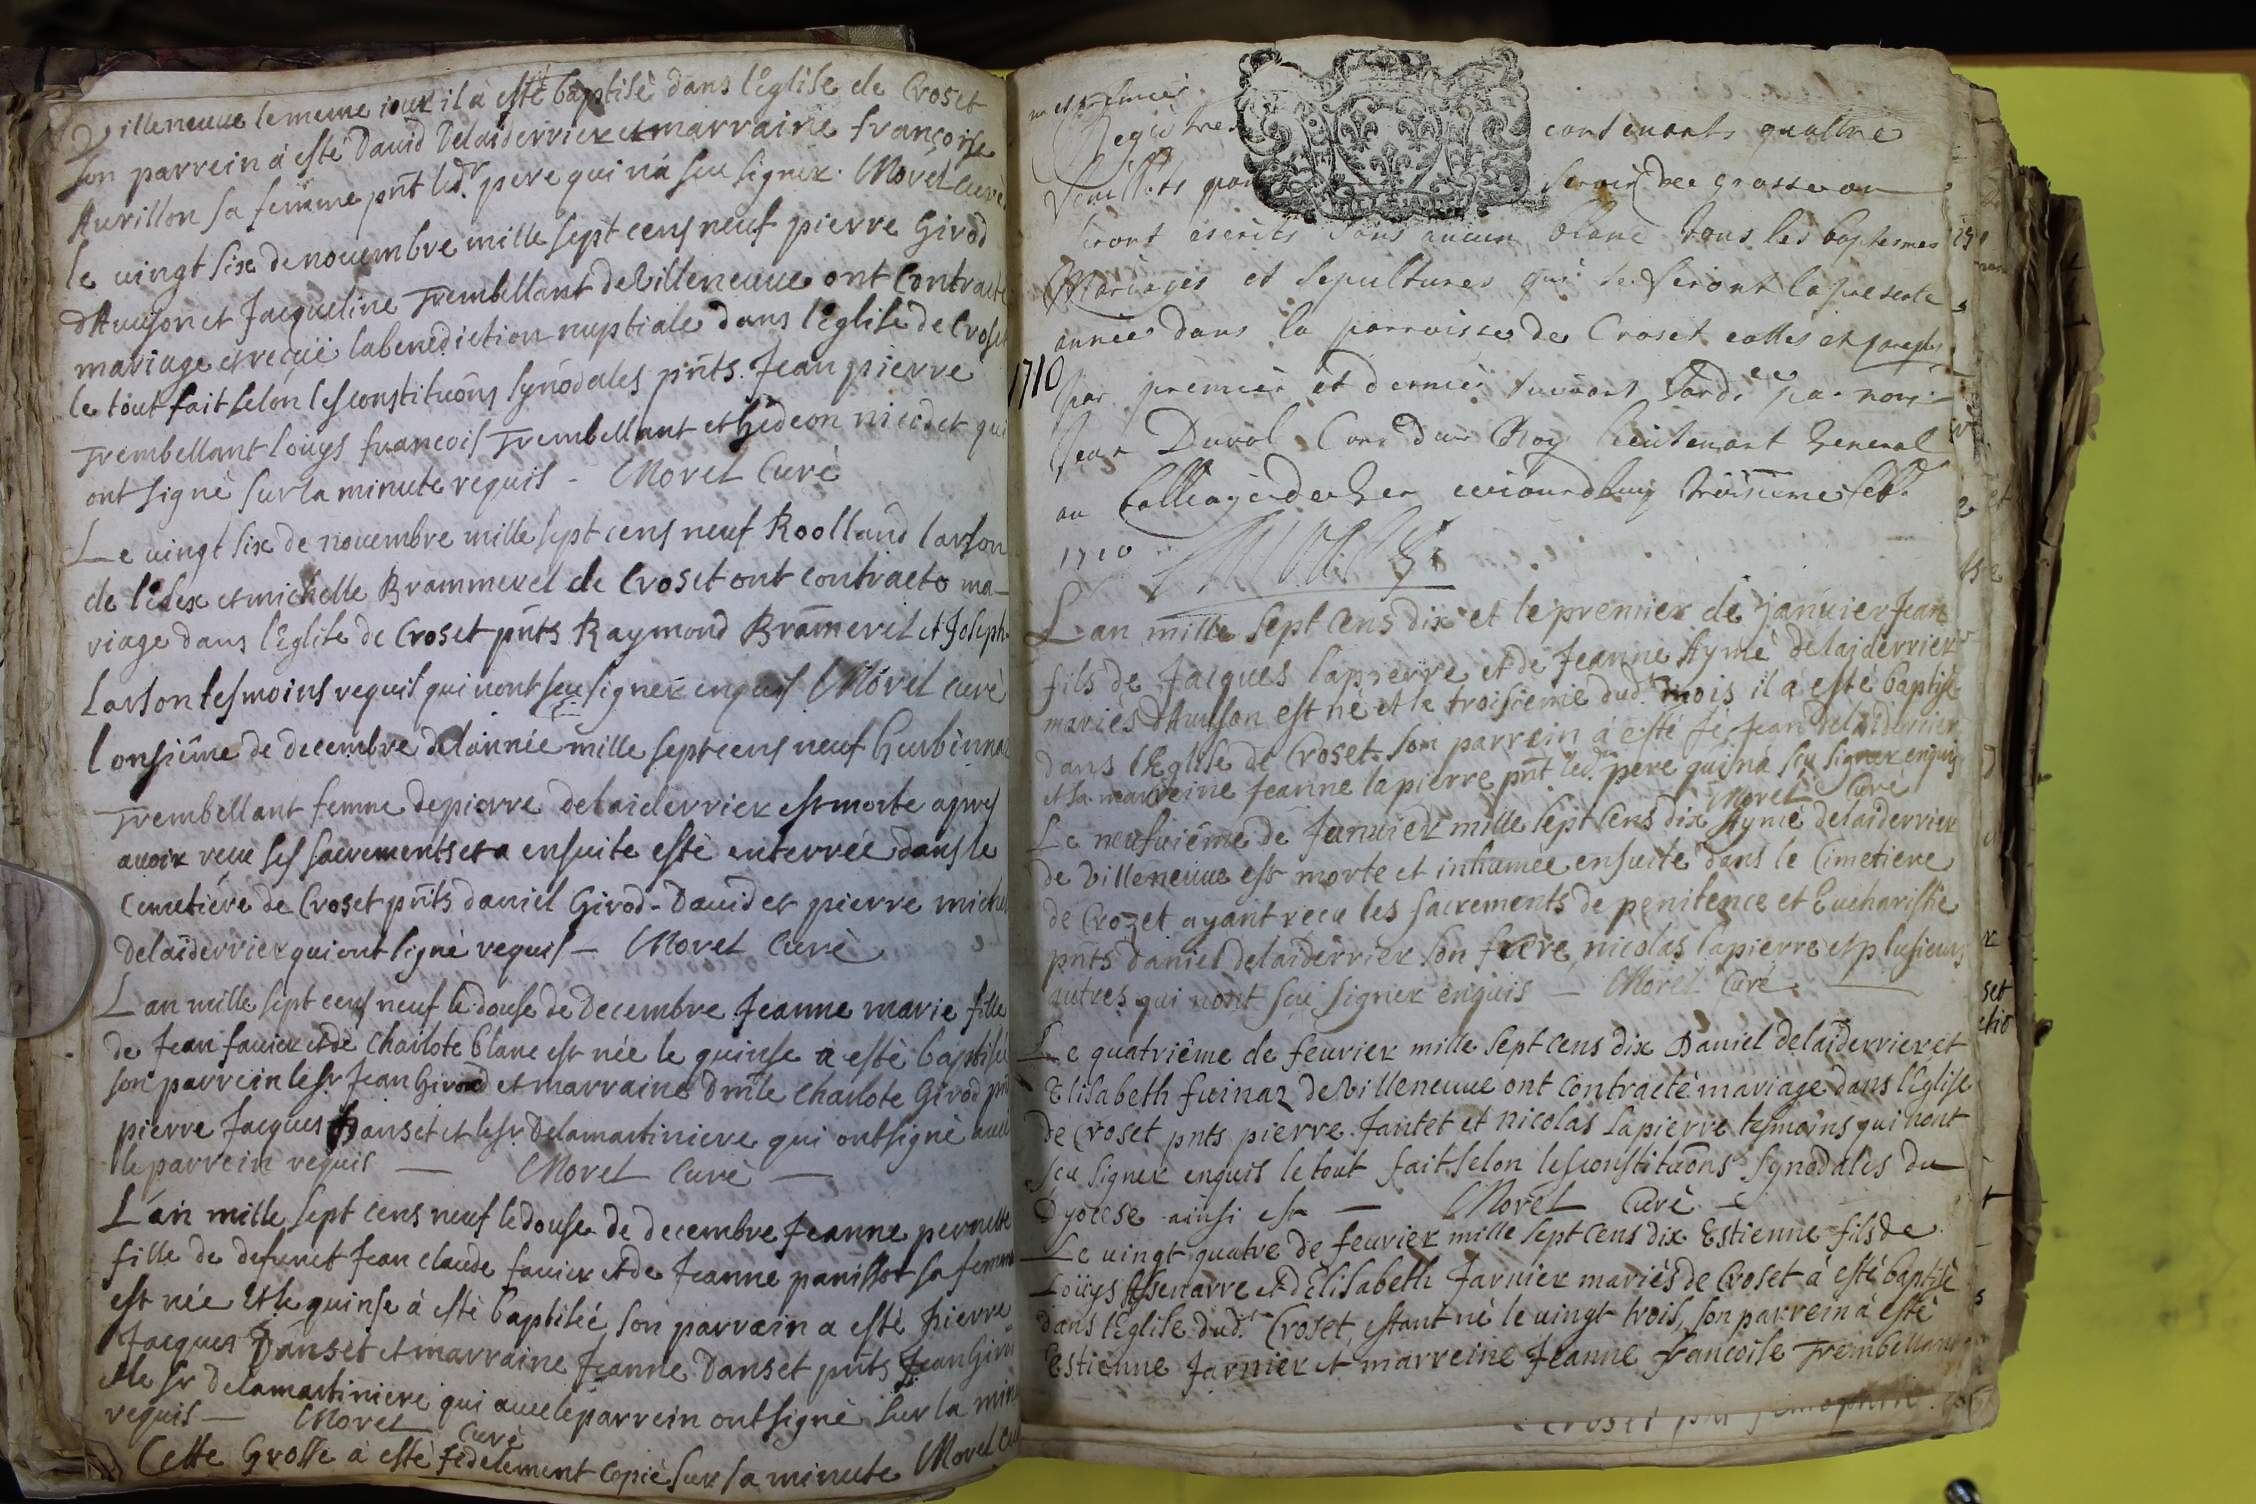 Villeneuve le meme iour il à esté baptisé dans l'Eglise de Croset
son parrein à esté David Delaiderrier et marraine françoise
Aurillon sa femme pnt led.r pere qui n'á sceu signer. Morel Curé
le vingt six de novembre mille sept cens neuf pierre Girod
d'Avuson et Jacqueline Trembellant de Villeneuve ont Contracté
mariage et reçuë la benediction nuptiale dans l'Eglise de Croset
le tout fait selon les constituõns synodales pñts Jean pierre
Trembellant louys françois Trembellant et Gedeon nicodet qui
ont signé sur la minute requis - Morel Curé
Le vingt six de novembre mille sept cens neuf Roolland larson
de l'Elex et michelle Brammerel de Croset ont contracto ma-
riage dans l'Eglise de Croset pñts Raymond Bramerel et Joseph
Larson tesmoins requis qui n'ont sceu signer enquis Morel curé
l'onsiême de decembre de l'année mille sept cens neuf
Trembellant femme de pierre delaiderrier est morte apres
avoir receu ses sacrements et a ensuite esté enterrée dans le
Cemetiére de Croset pñts daniel Girod - David et pierre michel
delaiderrier qui ont signé requis - Morel Curé
L'an mille sept cens neuf le douse de Decembre Jeanne marie fille
de Jean favier et de Charlote blanc est née le quinse a esté baptisée
son parrein le Sr Jean Girod et marraine Dmlle Charlote Girod pnts
pierre Jacques Danset et le Sr Delamartiniere qui ont signé avec
le parrein requis - Morel Curé -
L'an mille sept cens neuf le douse de decembre Jeanne pernette
fille de defunct Jean claude favier et de Jeanne panissot sa femme
est née Et le quinse à esté baptisée son parrain a esté pierre
Jacques Danset et marraine Jeanne Danset pñts Jean Giro
et le Sr Delamartiniere qui avec le parrein ont signé sur la min
requis - Morel Curé
Cette Grosse à esté fidelement copié sur sa minute Morel Cu
premier
Registres contenants quattre
feuillets pour servir de grosse ou
seront escrits sans aucun blanc tous les baptesmes
Mariages et sepultures qui se feront la presente
année dans la parroisse de Croset cottes et parafes
1710
par premier et dernier suivant l'ord.ce par nous
Jean Duval Cons.r du Roy lieutenant General
au balliage de Gex ceiourdhuy troisieme feb.r
1710
L'an mille sept cens dix et le premier de janvier Jean
fils de Jacques lapierre et de Jeanne Aymé delaiderrier
mariés d'Avuson est né et le troisieme dud.t mois il à esté baptisé
dans l'Eglise de Croset. son parrein à esté Jean delaiderrier
et sa marreine Jeanne lapierre pñt led.r pere qui n'á sceu signer enquis
Morel Curé
Le neufviême de Janvier mille sept cens dix Aymé delaiderrier
de Villeneuve est morte et inhumée ensuite dans le Cimetiere
de Crozet ayant receu les sacrements de penitence et Eucharistie
pñts daniel delaiderrier son frere, nicolas lapierre et plusieurs
autres qui n'ont sceu signer enquis - Morel Curé
Le quatriême de fevrier mille sept cens dix Daniel delaiderrier et
Elisabeth furnaz de Villeneuve ont contracté mariage dans l'Eglise
de Croset pnts pierre Jantet et nicolas lapierre tesmoins qui n'ont
sceu signer enquis le tout fait selon les constituõns synodales du
Dyocese ainsi est - Morel Curé -
Le vingt quatre de fevrier mille sept cens dix Estienne fils de
Loüys et d'Elisabeth Jarnier mariés de Croset à esté baptisé
dans l'Eglise dud.t Croset, estant né le vingt trois, son parrein à esté
Estienne Jarnier et marreine Jeanne françoise Trembellant